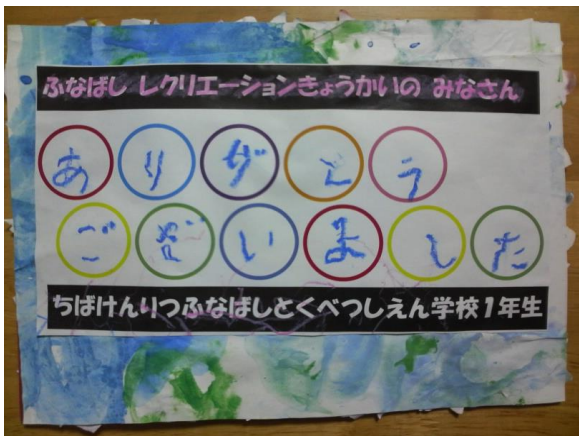 ふなばし レクリエーションきょうかいの みなさん
ありがとう
ございました
ちばけんりつふなばしとくべつしえん学校1年生